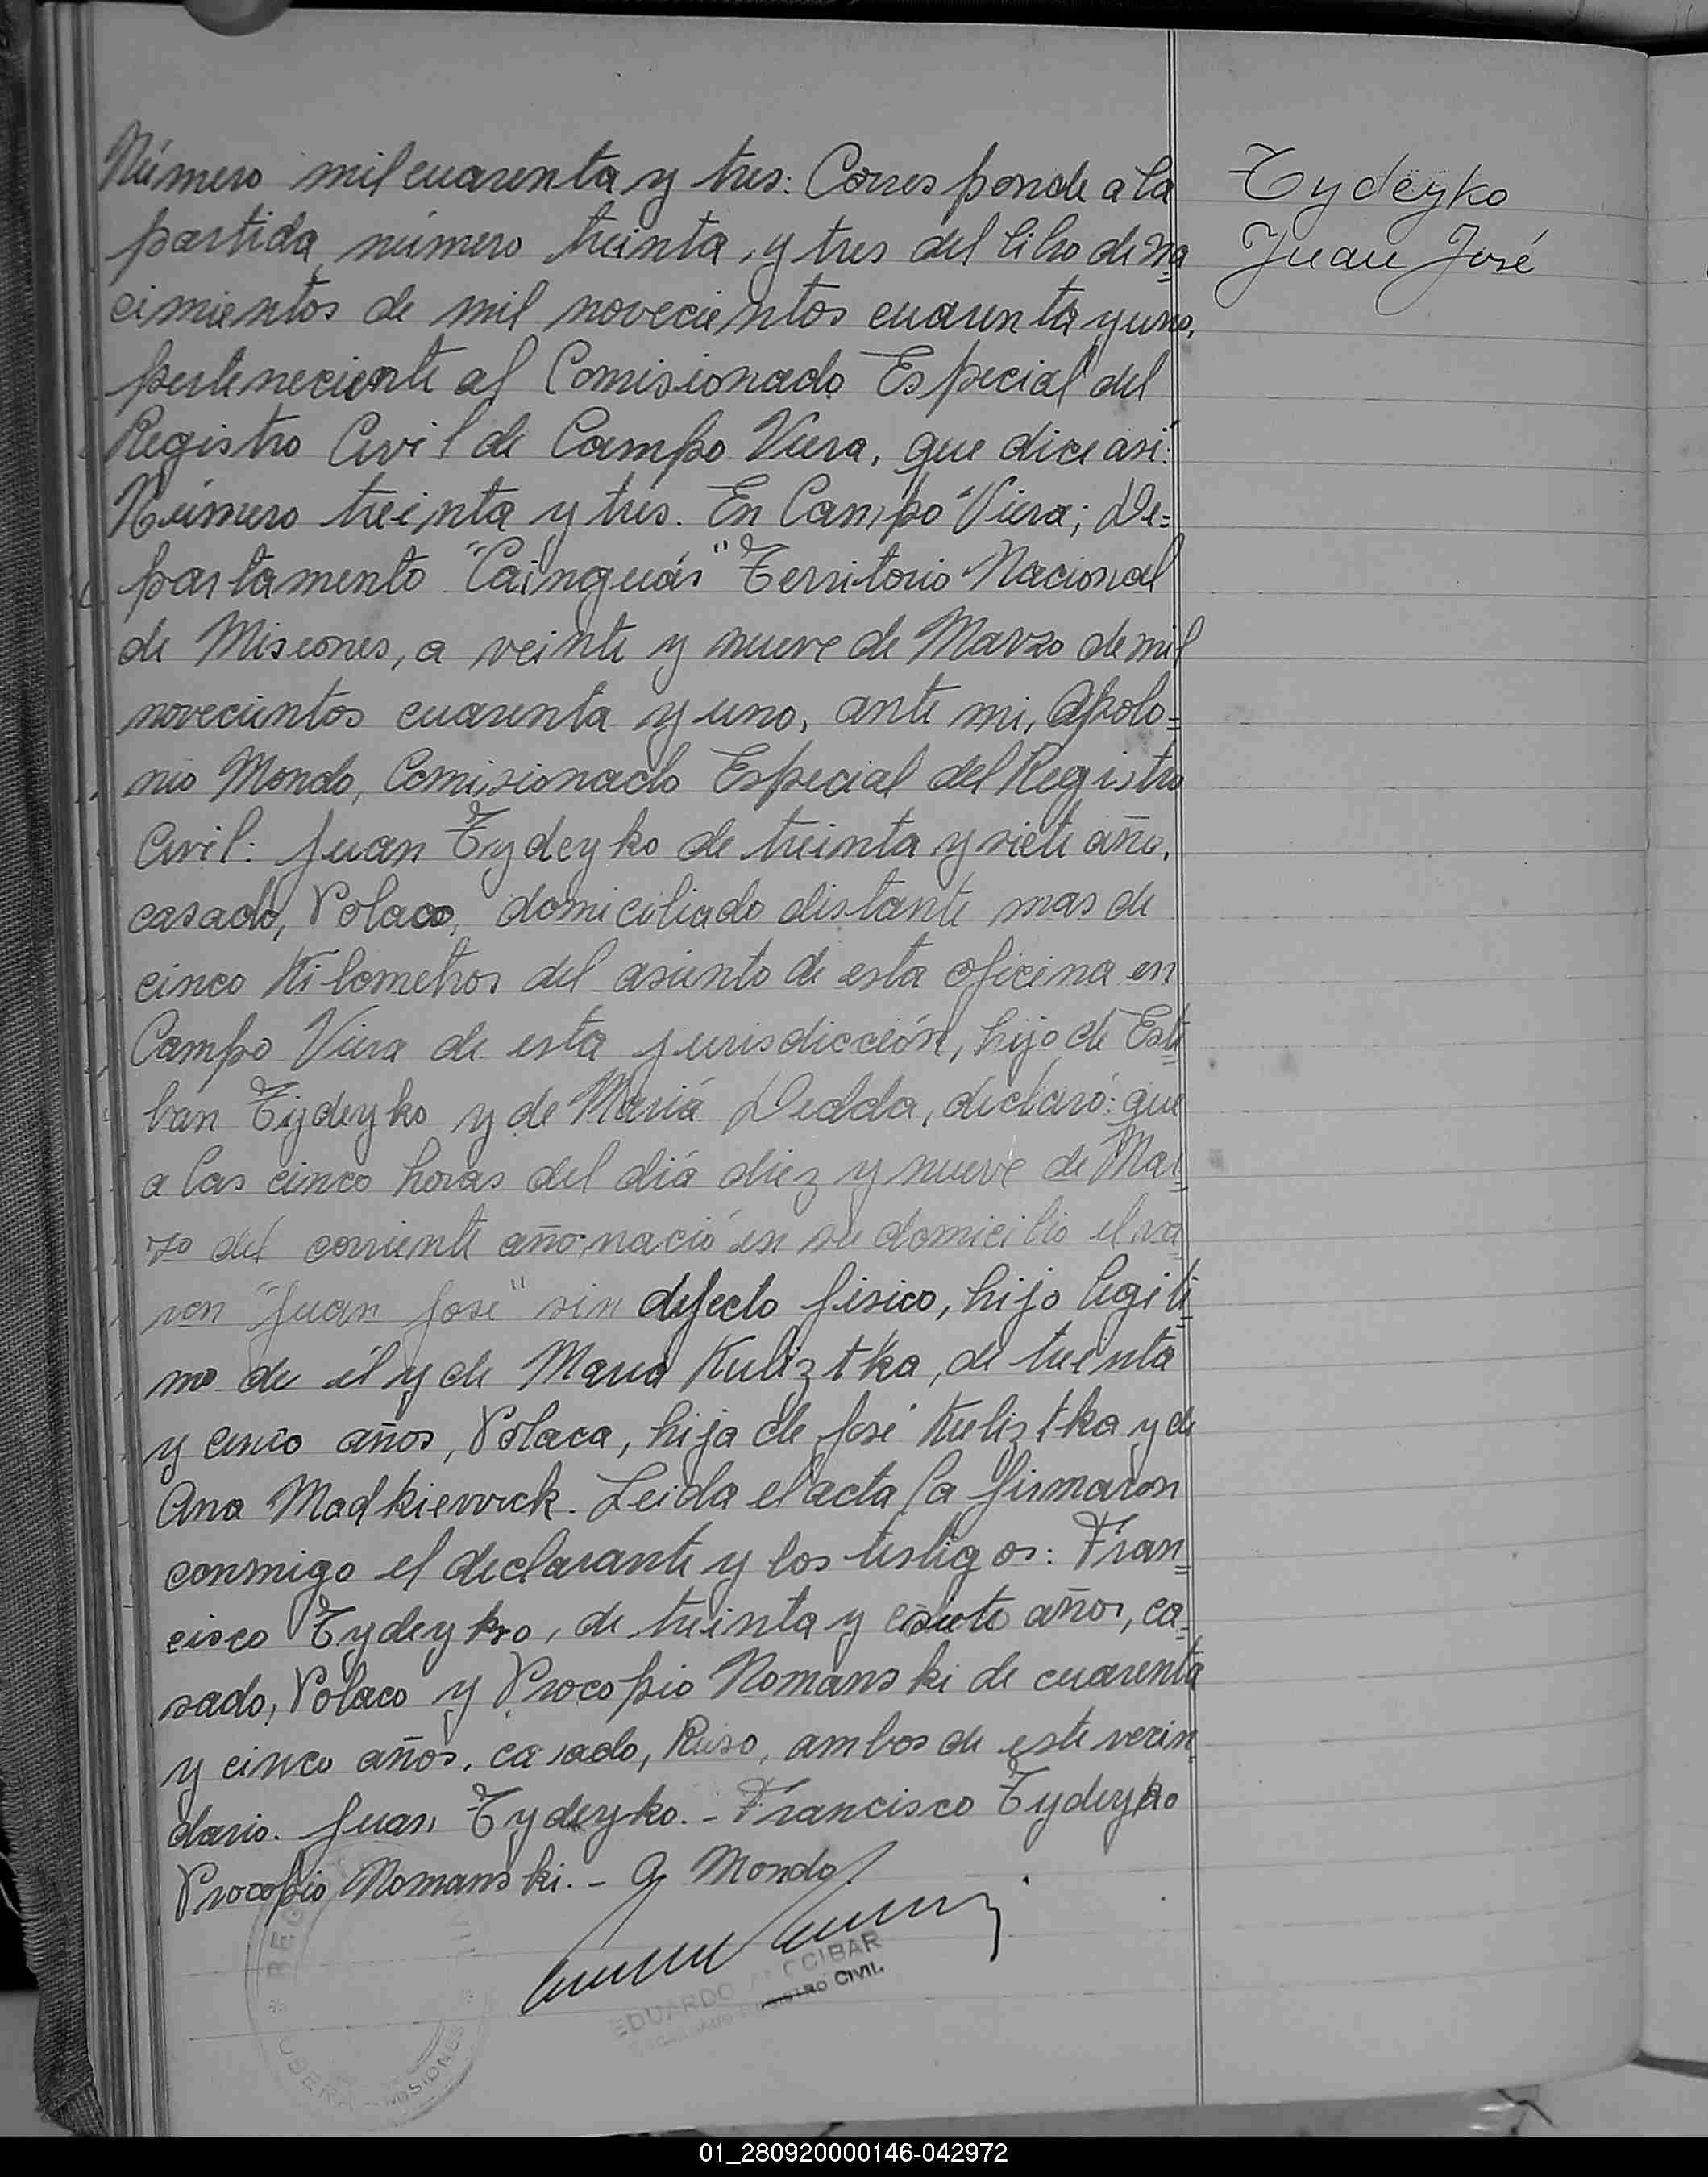 Número mil cuarenta y tres: Corresponde a la
partida número treinta, y tres del libro de na=
cimientos de mil novecientos cuarenta y uno,
perteneciente al Comisionado Especial del
Registro Civil de Campo Viera, que dice así:
Número treinta y tres. En Campo Viera; De=
partamento "Cainguás" Territorio Nacional
de Misiones, a veinte y nueve de Marzo de mil
novecientos cuarenta y uno, ante mi, Apolo=
nio Mondo, Comisionado Especial del Registro
Civil: Juan Tydeyko de treinta y siete año,
casado, Polaco, domiciliado distante mas de
cinco Kilometros del asiento de esta oficina en
Campo Viera de esta jurisdicción, hijo de Este=
ban Tijdeyko y de María Dedda, declaró: que
a las cinco horas del día diez y nueve de Mar=
zo del corriente año nació en su domicilio el va=
ron "Juan José" sin defecto fisico, hijo legiti=
mo de él y de Maria Kuliztka, de treinta
y cinco años, Polaca, hija de José Kuliztka y de
Ana Madkiewick. Leida el acta la firmaron
conmigo el declarante y los testigos: Fran=
cisco Tydeykro, de treinta y siete años, ca=
sado, Polaco y Procopio Romanski de cuarenta
y cinco años, casado, Ruso, ambos de este vecin=
dario. Juan Tydeyko. - Francisco Tydeyko
Procopio Romanski. - A Mondo.
Tydeyko
Juan José
EDUARDO CIBAR
REGISTRO CIVIL
MISIONES
01_280920000146-042972